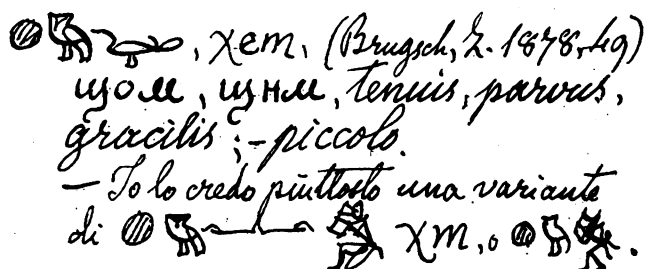 𓐍𓅓𓅭, χem, (Brugsch, Z. 1878, 49)
ϣⲟⲙ, ϣⲏⲙ, tenuis, parvus,
gracilis; – piccolo.
— Io lo credo piuttosto una variante
di 𓐍𓅓 χm, o 𓐍𓅓.